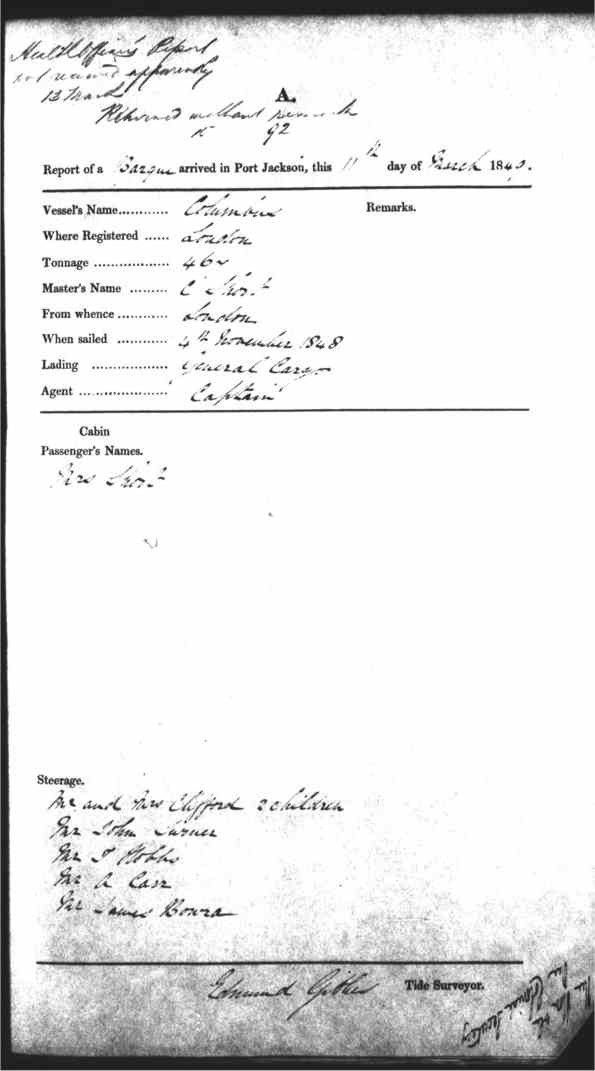 Health Officer's Report
not received apparently
13 March
A.
Returned without
92
Report of a Barque arrived in Port Jackson, this 11th day of March 1849.
Vessel's Name............ Columbia
Remarks.
Where Registered ...... London
Tonnage .................. 462
Master's Name ......... C Short
From whence ............ London
When sailed ............ 4th November 1848
Lading .................. General Cargo
Agent ..................... Captain
Cabin
Passenger's Names.
Mrs Short
Steerage.
Mr and Mrs Clifford 2 children
Mr John Turner
Mr T Hobbs
Mr A Carr
Mr James Bowra
Edmund Gibbes Tide Surveyor.